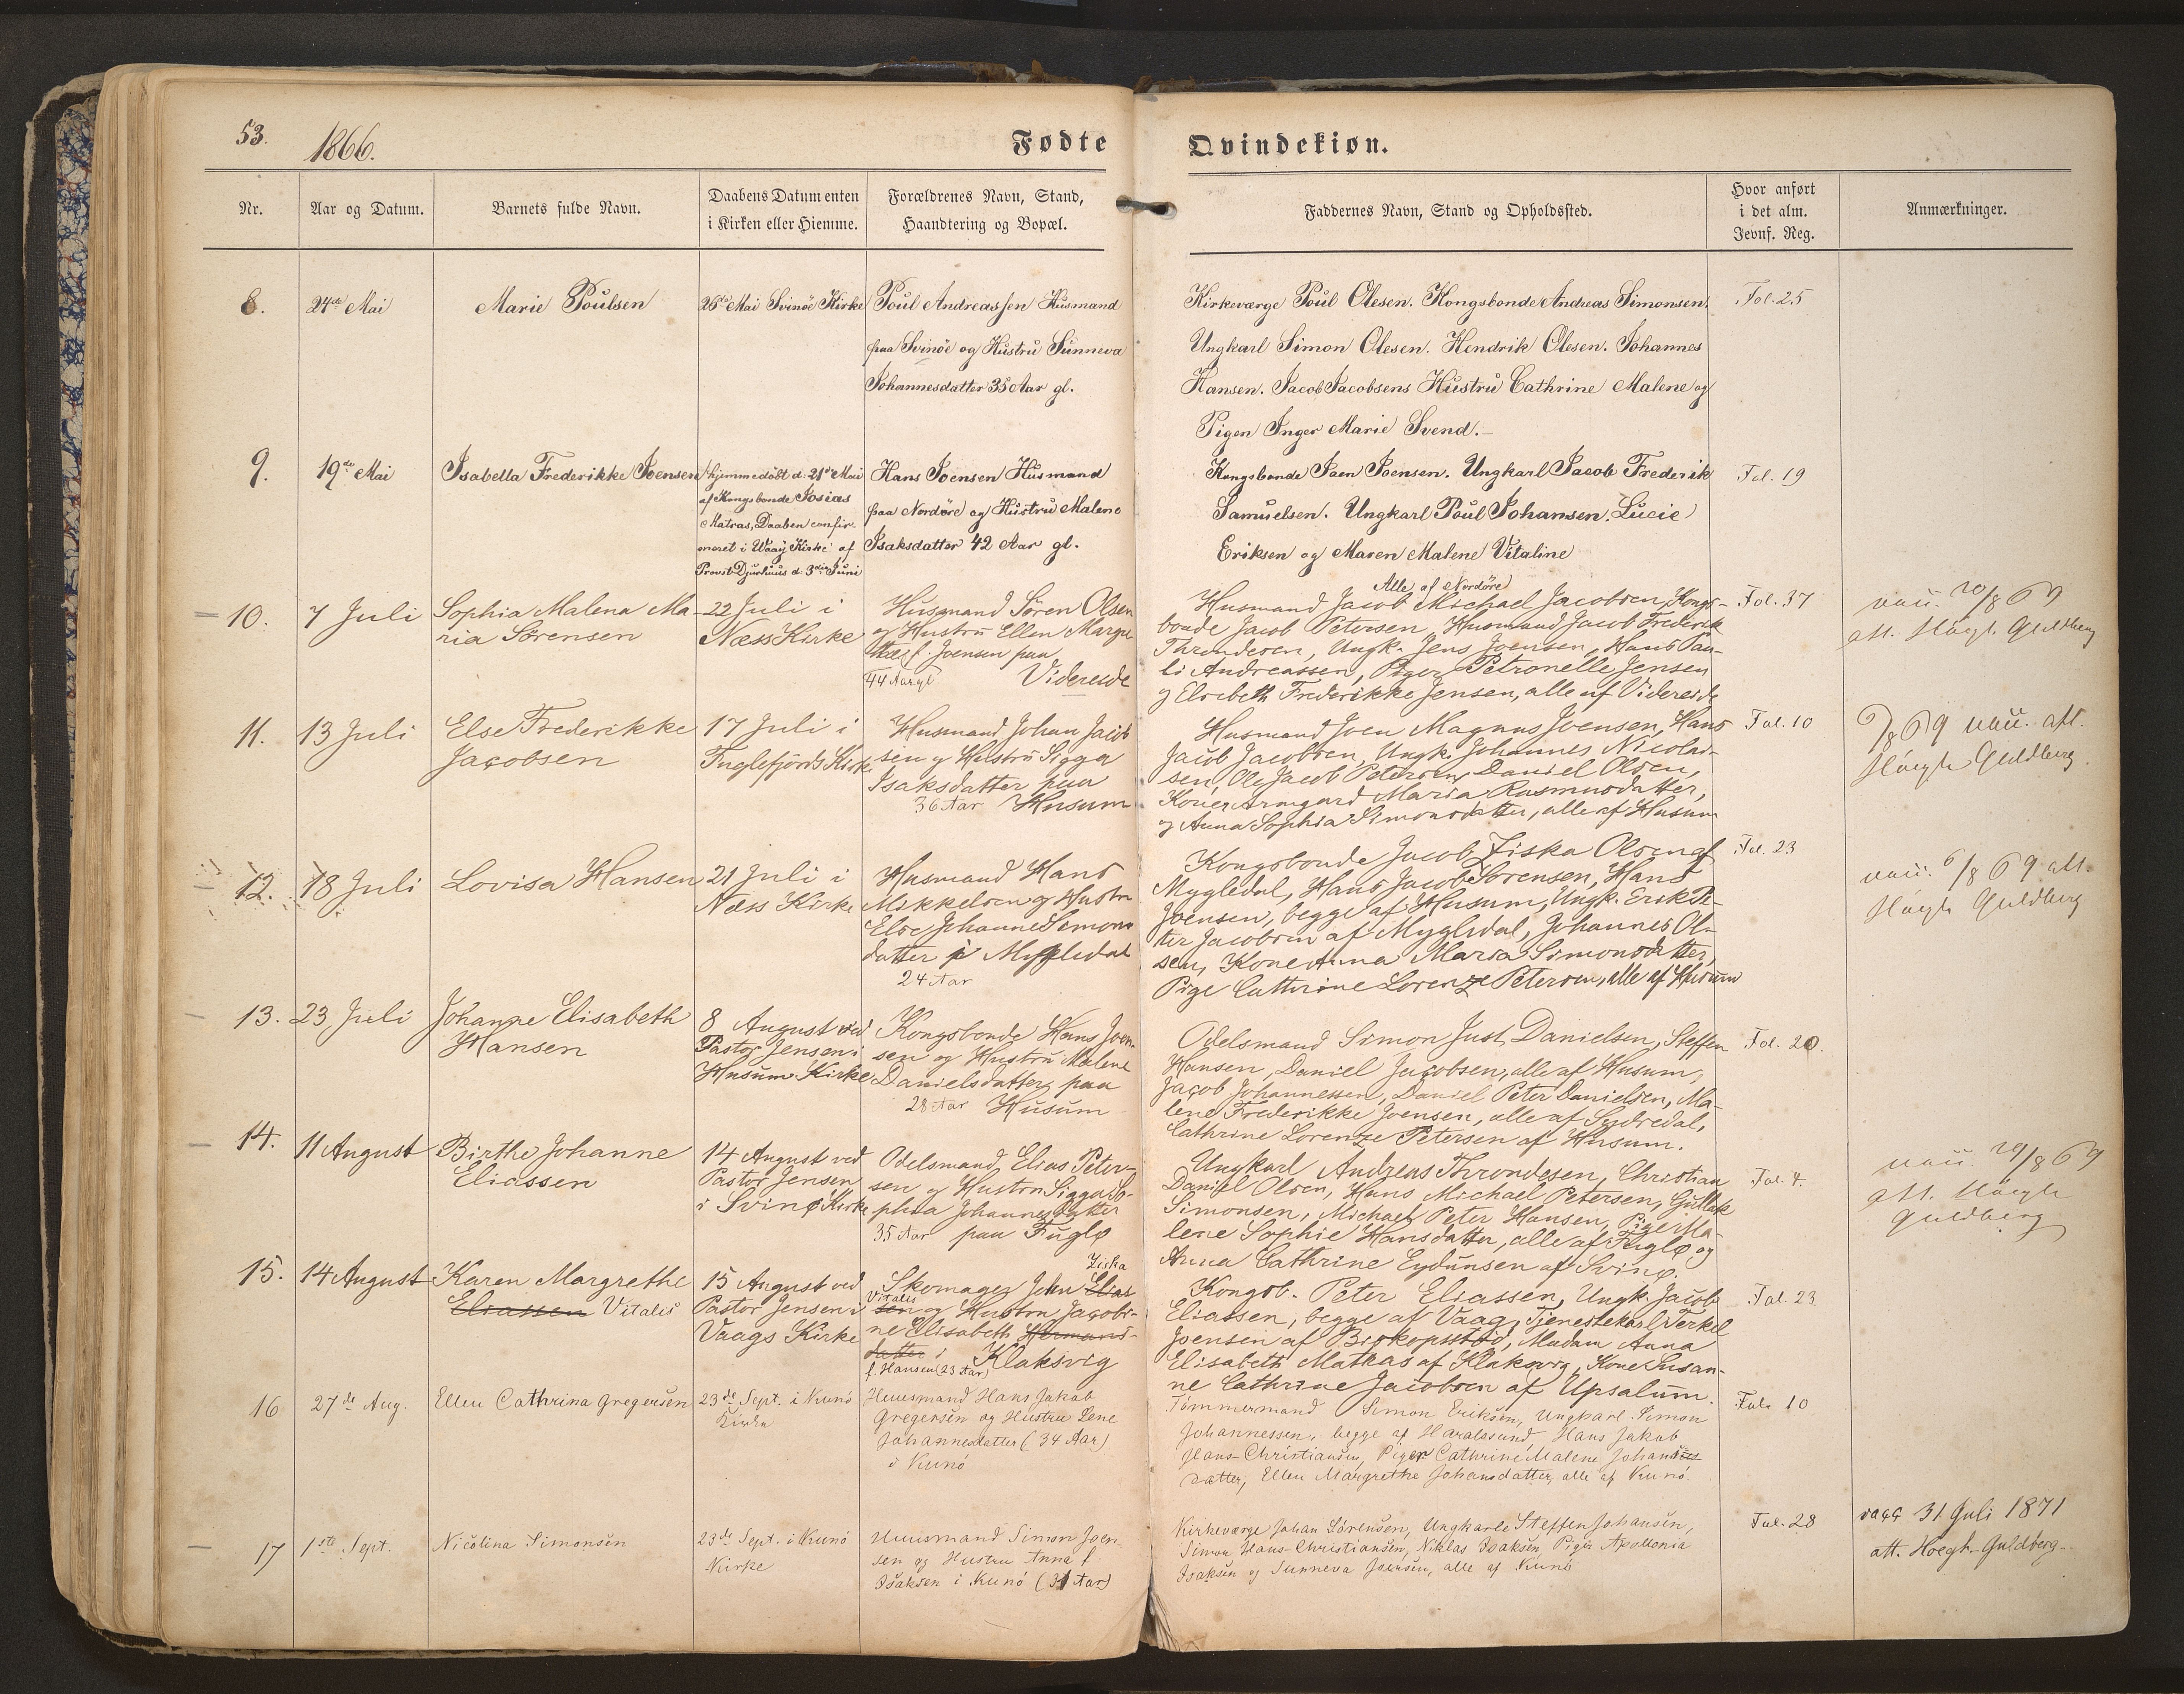 53.
1866.
Fødte
Qvindekiøn.
Nr.
Aar og Datum.
Barnets fulde Navn.
Daabens Datum enten
i Kirken eller Hiemme.
Forældrenes Navn, Stand,
Haandtering og Bopæl.
Faddernes Navn, Stand og Opholdssted.
Hvor anført
i det alm.
Jevnf. Reg.
Anmærkninger.
8.
24de Mai
Marie Poulsen
26de Mai Svinöe Kirke
Poul Andreassen Husmand
paa Svinöe og Hustru Sunneva
Johannesdatter 35 Aar gl.
Kirkeværge Poul Olesen. Kongsbonde Andreas Simonsen.
Ungkarl Simon Olesen. Hendrik Olesen. Johannes
Hansen. Jacob Jacobsens Hustru Cathrine Malene og
Pigen Inger Marie Svend.-
Fol. 25
9.
19de Mai
Isabella Frederikke Joensen
hjemmedöbt d. 21de Mai
af Kongsbonde Josias
Matras, Daaben confir-
meret i Waag Kirke af
Provst Djurhuus d. 3die Juni
Hans Joensen Husmand
paa Nordöre og Hustru Malene
Isaksdatter 42 Aar gl.
Kongsbonde Joen Joensen. Ungkarl Jacob Frederik
Samuelsen. Ungkarl Poul Johansen. Lucie
Eriksen og Maren Malene Vitaline
Alle af Nordöre
Fol. 19
10.
7 Juli
Sophia Malena Ma-
ria Sørensen
22 Juli i
Næss Kirke
Husmand Søren Olsen
og Hustru Ellen Margre-
the f. Joensen paa
44 Aar gl Videreide
Husmand Jacob Michael Jacobsen, Kongs-
bonde Jacob Petersen, Husmand Jacob Frederik
Throndesen, Ungk. Jens Joensen, Hans Pau-
li Andreassen, Piger Petronelle Jensen
og Elsebeth Frederikke Jensen, alle af Videreide
Fol. 37
20/8 69
att. Höegh Guldberg
11.
13 Juli
Else Frederikke
Jacobsen
17 Juli i
Fuglefjords Kirke
Husmand Johan Jacob
sen og Hustru Sigga
Isaksdatter paa
36 Aar Husum
Husmand Joen Magnus Joensen, Hans
Jacob Jacobsen, Ungk. Johannes Nicolai-
sen, Ole Jacob Petersen, Daniel Olsen,
Koner Armgard Maria Rasmusdatter,
og Anna Sophia Simonsdatter, alle af Husum
Fol. 10
6/8 69 att.
Höegh Guldberg
12.
18 Juli
Lovisa Hansen
21 Juli i
Næss Kirke
Husmand Hans
Mikkelsen og Hustru
Else Johanne Simons
datter i Mygledal
24 Aar
Kongsbonde Jacob Ziska Olsen af
Mygledal, Hans Jacob Sörensen, Hans
Joensen, begge af Husum, Ungk. Erik Pe-
ter Jacobsen af Mygledal, Johannes Ol-
sen, Kone Anna Maria Simonsdatter,
Pige Cathrine Lorenze Petersen, alle af Husum
Fol. 23
6/8 69 att.
Höegh Guldberg
13.
23 Juli
Johanne Elisabeth
Hansen
8 August ved
Pastor Jensen i
Husum Kirke
Kongsbonde Hans Joen-
sen og Hustru Malene
Danielsdatter paa
28 Aar Husum
Odelsmand Simon Just Danielsen, Steffen
Hansen, Daniel Jacobsen, alle af Husum,
Jacob Johannessen, Daniel Peter Danielsen, Ma-
lene Frederikke Joensen, alle af Sydredal,
Cathrine Lorenze Petersen af Husum.
Fol. 20.
14.
11 August
Birthe Johanne
Eliassen
14 August ved
Pastor Jensen
i Svinø Kirke
Odelsmand Elias Peter-
sen og Hustru Sigga So-
phia Johannesdatter
35 Aar paa Fuglø
Ungkarl Andreas Throndesen, Christian
Daniel Olsen, Hans Michael Petersen, Gutlak
Simonsen, Michael Peter Hansen, Piger Ma-
lene Sophie Hansdatter, alle af Fuglø og
Anna Cathrine Eydunsen af Svinø.
Fol. 4.
20/8 69
att. Höegh
Guldberg
15.
14 August
Karen Margrethe
Eliassen Vitalis
15 August ved
Pastor Jensen i
Vaags Kirke
Ziska
Skomager John Elias
Vitalis
sen og Hustru Jacobi-
ne Elisabeth Hermans-
datter i Klaksvig
f. Hansen (23 Aar)
Kongsb. Peter Eliassen, Ungk. Jacob
Eliassen, begge af Vaag, Tjenestekarl Terkel
Joensen af Biskopsstöd, Madam Anna
Elisabeth Matras af Klaksvig, Kone Susan-
ne Cathrine Jacobsen af Upsalum.
Fol. 23
16
27de Aug.
Ellen Cathrina Gregersen
23de Sept. i Kunö
Kirke
Huusmand Hans Jakob
Gregersen og Hustru Lene
Johannesdatter (34 Aar)
i Kunö
Tömmermand Simon Eriksen, Ungkarl Simon
Johannessen, begge af Haraldsund, Hans Jakob
Hans-Christiansen, Piger Cathrine Malene Johannes
datter, Ellen Margrethe Johansdatter, alle af Kunö.
Fol. 10
17
1ste Sept.
Nicolina Simonsen
23de Sept. i Kunö
Kirke
Huusmand Simon Joen-
sen og Hustru Anna f.
Isaksen i Kunö (31 Aar)
Kirkeværge Johan Sörensen, Ungkarle Steffen Johansen,
Simon Hans-Christiansen, Niklas Isaksen Piger Apollonia
Isaksen og Sunneva Joensen, alle af Kunö
Fol. 28
vacc 31 Juli 1871
att. Hoegh-Guldberg-